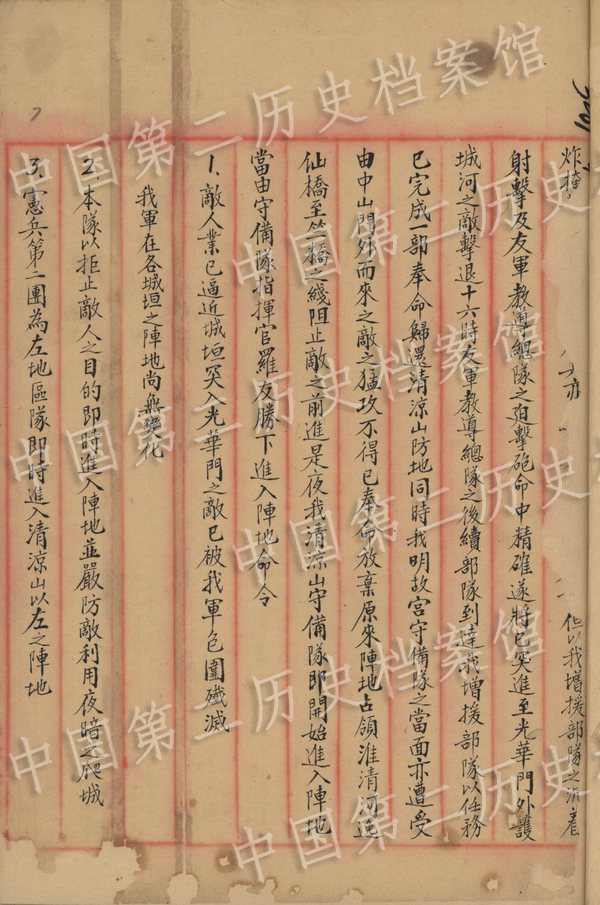 炸掩
但以我增援部隊之沉着
射擊及友軍教導總隊之迫擊砲命中精確遂將已突進至光華門外護
城河之敵擊退十六時友軍教導總隊之後續部隊到達我增援部隊以任務
已完成一部奉命歸還清涼山防地同時我明故宮守備隊之當面亦遭受
由中山門外而來之敵之猛攻不得已奉命放棄原來陣地占領淮清河逸
仙橋至竺橋之綫阻止敵之前進是夜我清凉山守備隊即開始進入陣地
當由守備隊指揮官羅友勝下進入陣地命令
1、敵人業已逼近城垣突入光華門之敵已被我軍包圍殲滅
我軍在各城垣之陣地尚無變化
2、本隊以拒止敵人之目的即時進入陣地並嚴防敵利用夜暗之爬城
3、憲兵第二團為左地區隊即時進入清涼山以左之陣地
7
中国第二历史档案馆
中国第二历史档案馆
中国第二历史档案馆
中国第二历史档案馆